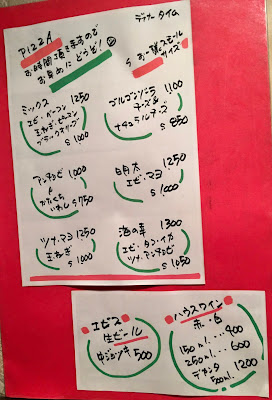 PIZZA
お時間頂きますので
お早めにどうぞ!
ディナータイム
S お一人スモール
サイズ
ミックス 1250
エビ・ベーコン
玉ねぎ・ピーマン
ブラックオリーブ
S 1000
ゴルゴンゾーラ 1100
チーズ&
ナチュラルチーズ
S 850
アンチョビ 1000
&
かたくち
いわし S 750
明太 1250
エビ・マヨ
S 1000
ツナ・マヨ 1250
玉ねぎ
S 1000
海の幸 1300
エビ・タコ・イカ
ツナ・アンチョビ
S 1050
エビス
生ビール
中ジョッキ 500
ハウスワイン
赤・白
150ml...400
250ml...600
デキャンタ
500ml. 1200